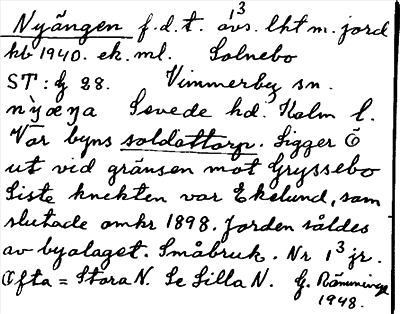 Nyängen f.d.t. avs. lht m. jord 1³
kb 1940. ek. ml. Solnebo
ST: G 28. Vimmerby sn.
nỳæŋa Sevede hd. Kalm l.
Var byns soldattorp. Ligger Ö
ut vid gränsen mot Gryssebo
Siste knekten var Ekelund, som
slutade omkr 1898. Jorden såldes
av byalaget. Småbruk. Nr 1³ jr.
Ofta = Stora N. Se Lilla N. G. Rämminge
1948.